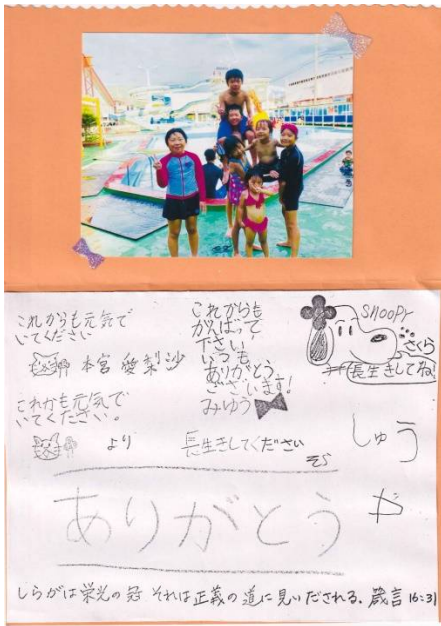 これからも元気で
いてください
本宮 愛梨沙
これかも元気で
いてください。
より
これからも
がんばって
下さい!
いつも
ありがとう
ございます!
みゆう
長生きしてください
そら
SNOOPY
さくら
長生きしてね!
しゅう
や
ありがとう
しらがは栄光の冠 それは正義の道に見いだされる. 箴言 16:31